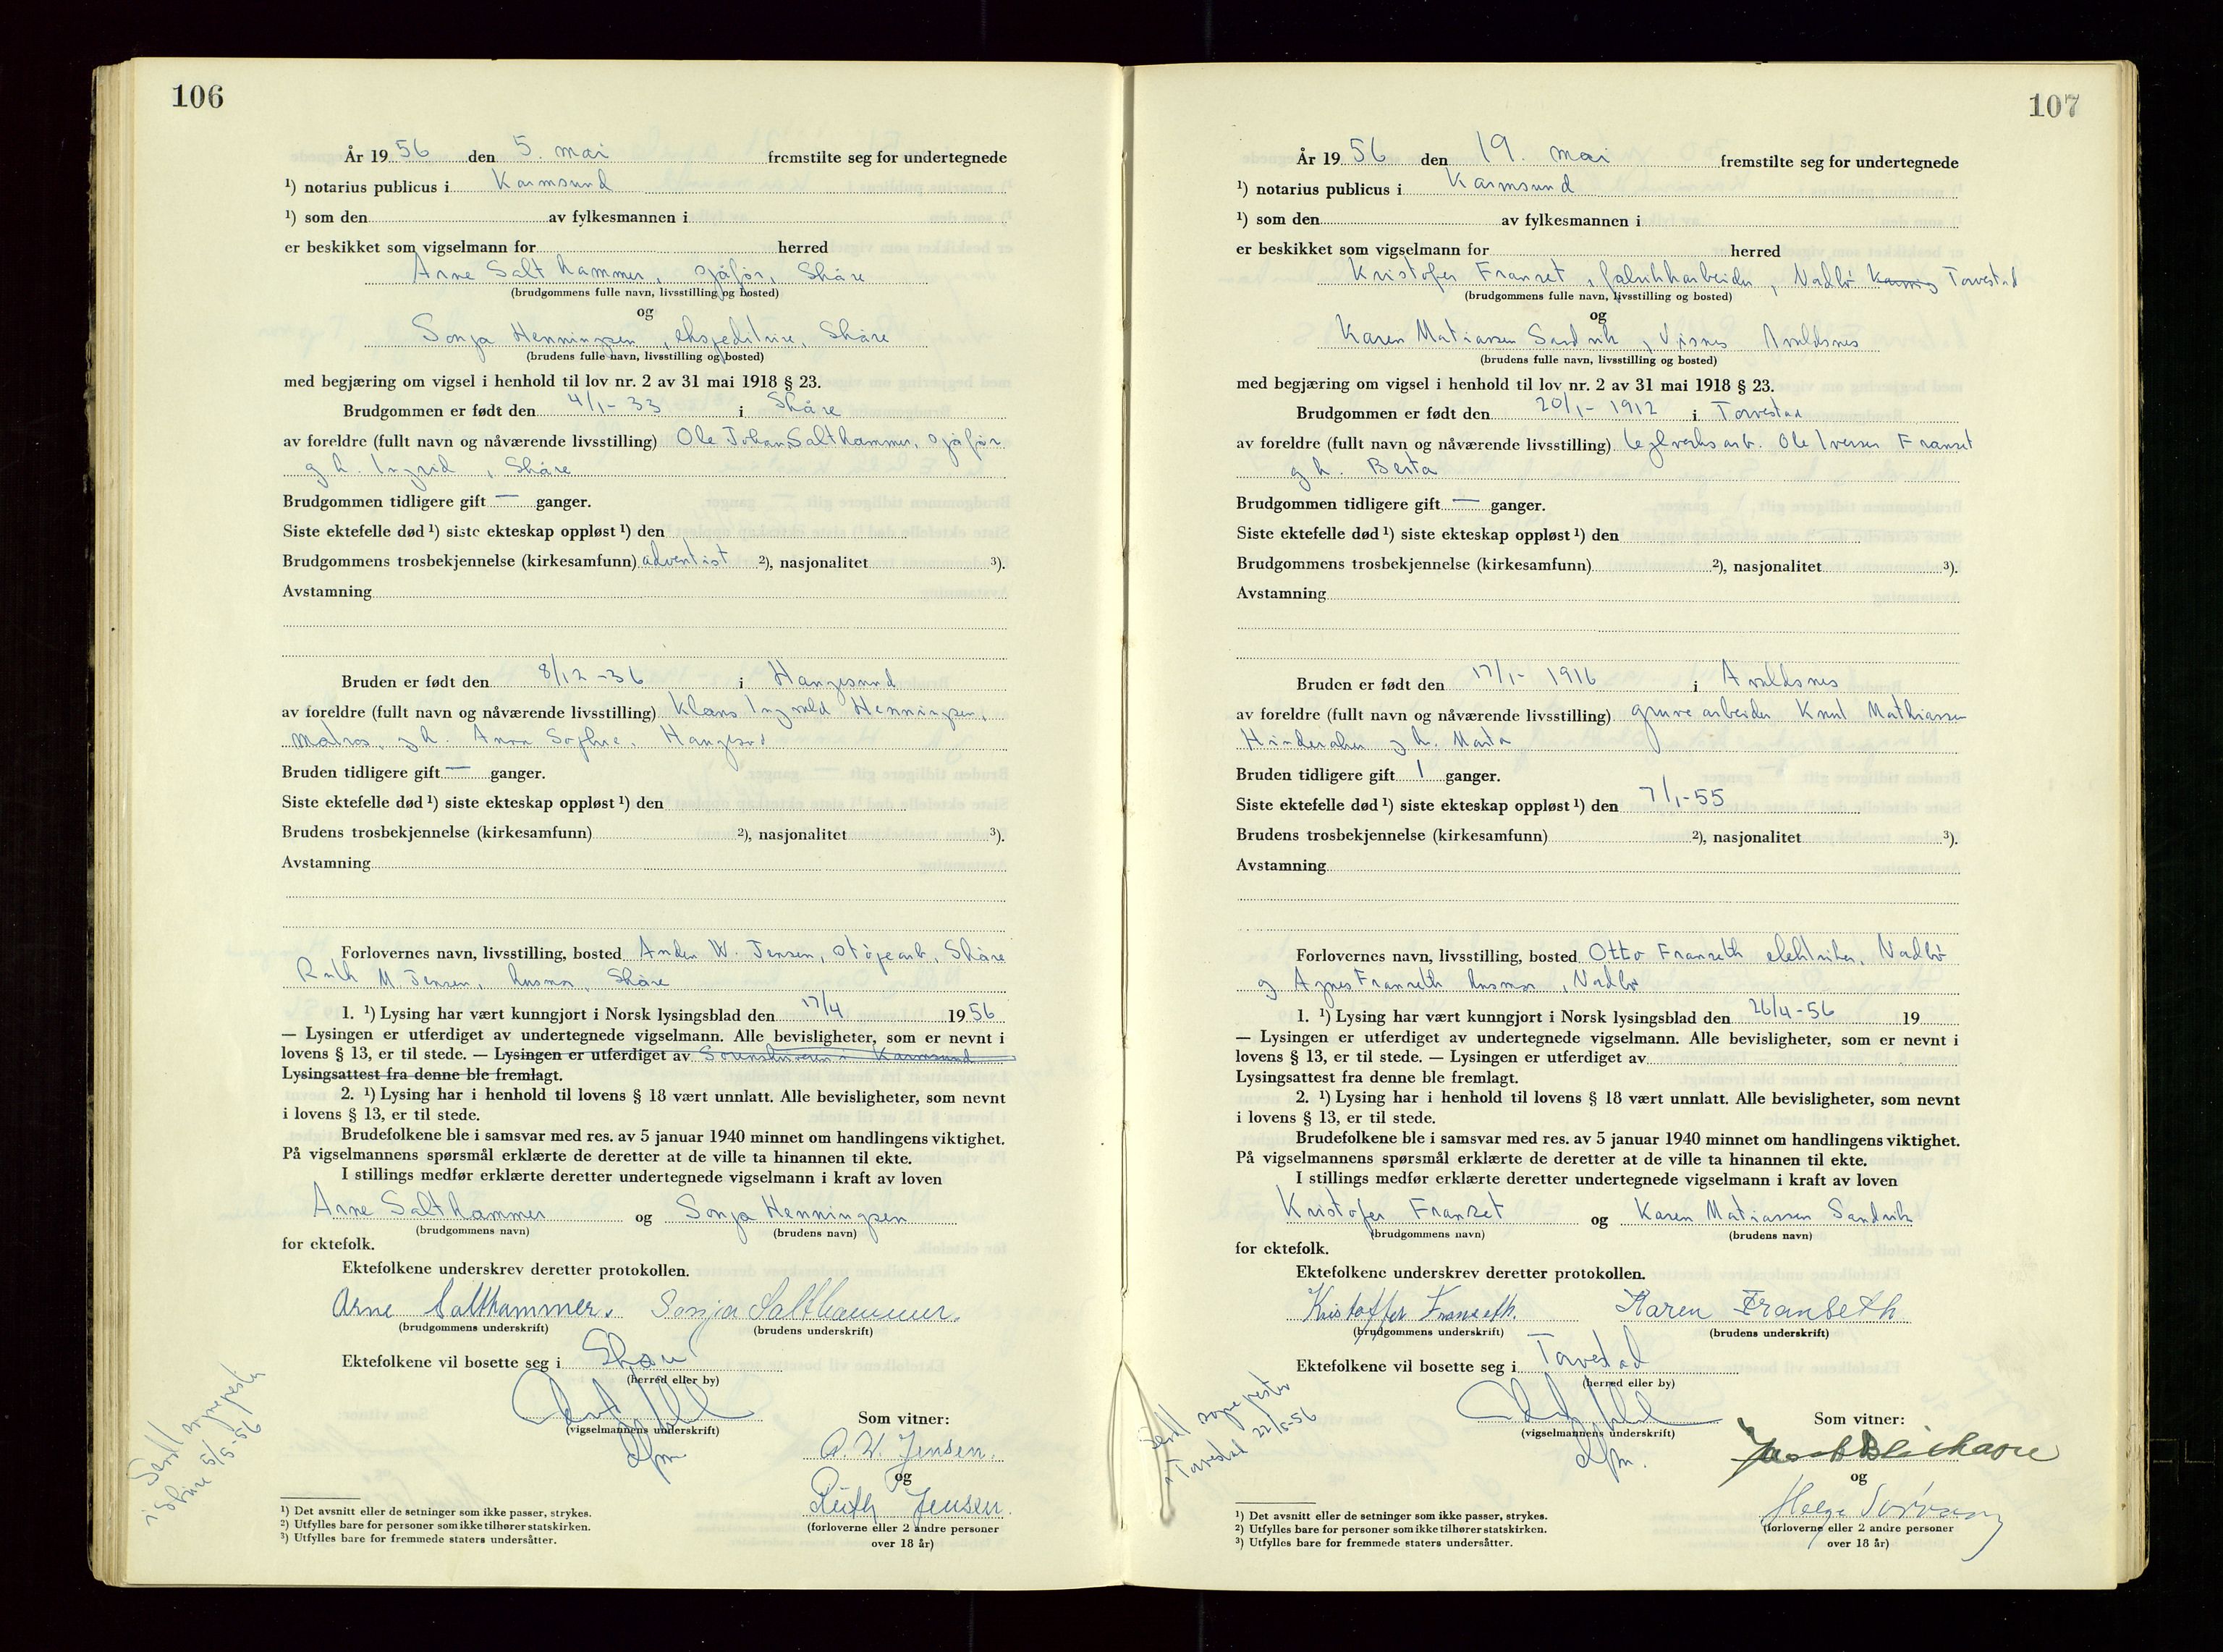 106
År 1956 den 5. mai fremstilte seg for undertegnede
¹) notarius publicus i Karmsund
¹) som den av fylkesmannen i
er beskikket som vigselmann for herred
Arne Salthammer, sjåfør, Skåre
(brudgommens fulle navn, livsstilling og bosted)
og
Sonja Henningsen, ekspeditrise, Skåre
(brudens fulle navn, livsstilling og bosted)
med begjæring om vigsel i henhold til lov nr. 2 av 31 mai 1918 § 23.
Brudgommen er født den 4/1- 33 i Skåre
av foreldre (fullt navn og nåværende livsstilling) Ole Johan Salthammer, sjåfør
g h. Ingrid, Skåre
Brudgommen tidligere gift — ganger.
Siste ektefelle død ¹) siste ekteskap oppløst ¹) den
Brudgommens trosbekjennelse (kirkesamfunn) adventist ²), nasjonalitet ³).
Avstamning
Bruden er født den 8/12 -36 i Haugesund
av foreldre (fullt navn og nåværende livsstilling) Klaus Ingvald Henningsen,
matros, g h. Anna Sophie, Haugesund
Bruden tidligere gift — ganger.
Siste ektefelle død ¹) siste ekteskap oppløst ¹) den
Brudens trosbekjennelse (kirkesamfunn) ²), nasjonalitet ³).
Avstamning
Forlovernes navn, livsstilling, bosted W. Jensen, Skåre
Ruth M. Jensen, husmor, Skåre
1. ¹) Lysing har vært kunngjort i Norsk lysingsblad den 17/4 1956
— Lysingen er utferdiget av undertegnede vigselmann. Alle bevisligheter, som er nevnt i
lovens § 13, er til stede. — Lysingen er utferdiget av Sorenskriveren i Karmsund
Lysingsattest fra denne ble fremlagt.
2. ¹) Lysing har i henhold til lovens § 18 vært unnlatt. Alle bevisligheter, som nevnt
i lovens § 13, er til stede.
Brudefolkene ble i samsvar med res. av 5 januar 1940 minnet om handlingens viktighet.
På vigselmannens spørsmål erklærte de deretter at de ville ta hinannen til ekte.
I stillings medfør erklærte deretter undertegnede vigselmann i kraft av loven
Arne Salthammer og Sonja Henningsen
(brudgommens navn) (brudens navn)
for ektefolk.
Ektefolkene underskrev deretter protokollen.
Arne Salthammer. Sonja Salthammer.
(brudgommens underskrift) (brudens underskrift)
Ektefolkene vil bosette seg i Skåre
(herred eller by)
(vigselmannens underskrift)
dfm
Som vitner:
A. W. Jensen.
og
Ruth Jensen.
(forloverne eller 2 andre personer
over 18 år)
Sendt sognepresten
i Skåre 5/5-56
¹) Det avsnitt eller de setninger som ikke passer, strykes.
²) Utfylles bare for personer som ikke tilhører statskirken.
³) Utfylles bare for fremmede staters undersåtter.
107
År 1956 den 19. mai fremstilte seg for undertegnede
¹) notarius publicus i Karmsund
¹) som den av fylkesmannen i
er beskikket som vigselmann for herred
Kristofer Franset, fabrikkarbeider, Vadbø Torvestad
(brudgommens fulle navn, livsstilling og bosted)
og
Karen Matiassen Sandvik, Visnes Avaldsnes
(brudens fulle navn, livsstilling og bosted)
med begjæring om vigsel i henhold til lov nr. 2 av 31 mai 1918 § 23.
Brudgommen er født den 20/1- 1912 i Torvestad
av foreldre (fullt navn og nåværende livsstilling) teglverksarb. Ole Iversen Franset
g h. Berta
Brudgommen tidligere gift — ganger.
Siste ektefelle død ¹) siste ekteskap oppløst ¹) den
Brudgommens trosbekjennelse (kirkesamfunn) ²), nasjonalitet ³).
Avstamning
Bruden er født den 17/1- 1916 i Avaldsnes
av foreldre (fullt navn og nåværende livsstilling) gruvearbeider Knut Mathiassen
Hinderaker g h. Marta
Bruden tidligere gift 1 ganger.
Siste ektefelle død ¹) siste ekteskap oppløst ¹) den 7/1-55
Brudens trosbekjennelse (kirkesamfunn) ²), nasjonalitet ³).
Avstamning
Forlovernes navn, livsstilling, bosted Otto Franseth elektriker, Vadbø
g Agnes Franseth husmor, Vadbø
1. ¹) Lysing har vært kunngjort i Norsk lysingsblad den 26/4-56 19
— Lysingen er utferdiget av undertegnede vigselmann. Alle bevisligheter, som er nevnt i
lovens § 13, er til stede. — Lysingen er utferdiget av
Lysingsattest fra denne ble fremlagt.
2. ¹) Lysing har i henhold til lovens § 18 vært unnlatt. Alle bevisligheter, som nevnt
i lovens § 13, er til stede.
Brudefolkene ble i samsvar med res. av 5 januar 1940 minnet om handlingens viktighet.
På vigselmannens spørsmål erklærte de deretter at de ville ta hinannen til ekte.
I stillings medfør erklærte deretter undertegnede vigselmann i kraft av loven
Kristofer Franset og Karen Matiassen Sandvik
(brudgommens navn) (brudens navn)
for ektefolk.
Ektefolkene underskrev deretter protokollen.
Kristoffer Franseth. Karen Franseth
(brudgommens underskrift) (brudens underskrift)
Ektefolkene vil bosette seg i Torvestad
(herred eller by)
(vigselmannens underskrift)
dfm.
Som vitner:
og
Helge
(forloverne eller 2 andre personer
over 18 år)
Sendt sogneprest
i Torvestad 22/5-56
¹) Det avsnitt eller de setninger som ikke passer, strykes.
²) Utfylles bare for personer som ikke tilhører statskirken.
³) Utfylles bare for fremmede staters undersåtter.